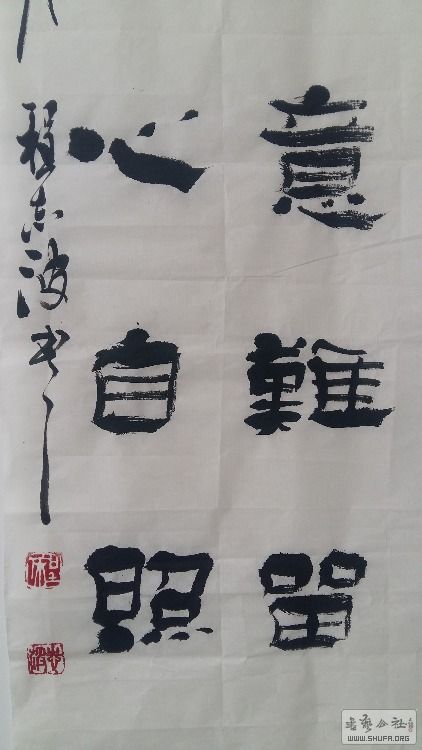 意難留
心自照
程志波书
书艺公社
WWW.SHUFA.ORG